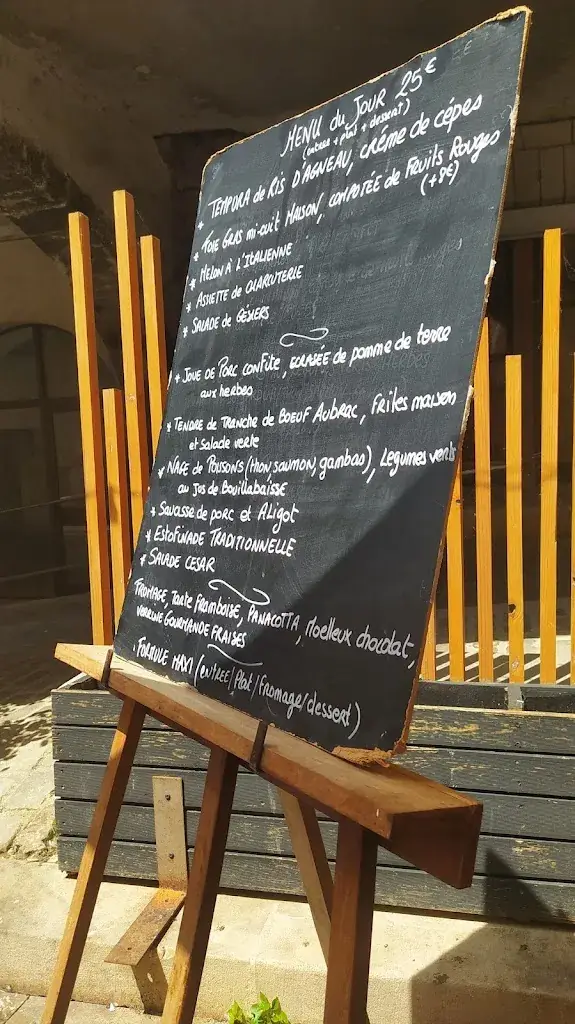 MENU du JOUR 25€
(entrée + plat + dessert)
* TEMPURA de RIS D'AGNEAU, CRÉME de cépes
* FOIE GRAS mi-cuit MAISON, COMPOTÉE de FRUITS ROUGES
(+8€)
* MELON À L'ITALIENNE
* ASSIETTE de CHARCUTERIE
* SALADE de GÉSIERS
* JOUE DE PORC CONFITE, ECRASÉE de pomme de terre
aux herbes
* TENDRE de TRANCHE de BOEUF AUBRAC, FRITES maison
et salade verte
* NAGE de POISSONS (thon, saumon, gambas), Légumes verts
au jus de Bouillabaisse
* Saucisse de porc et ALIGOT
* ESTOFINADE TRADITIONNELLE
* SALADE CESAR
FROMAGE, Tarte framboise, PANACOTTA, Moelleux chocolat,
VERRINE GOURMANDE FRAISES
. FORMULE MAXI (ENTRÉE/Plat/fromage/dessert)